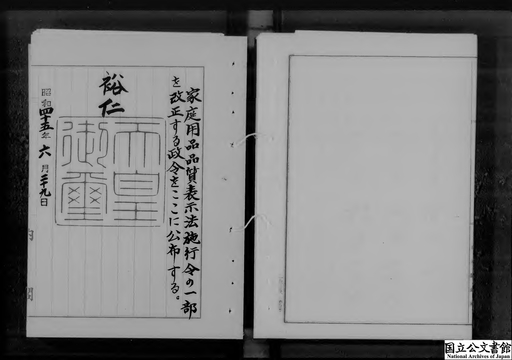 家庭用品品質表示法施行令の一部
を改正する政令をここに公布する。
裕仁
天皇
御璽
昭和四十五年六月二十九日
国立公文書館
National Archives of Japan